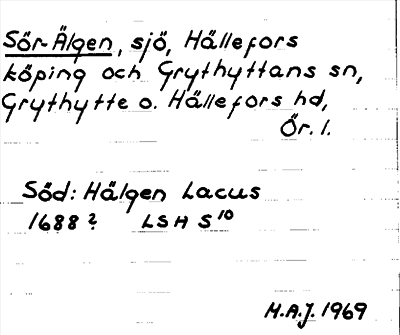 Sör-Älgen, sjö, Hällefors
köping och Grythyttans sn,
Grythytte o. Hällefors hd,
Ör. l.
Söd: Hälgen Lacus
1688? LSH S¹⁰
H.A.J. 1969